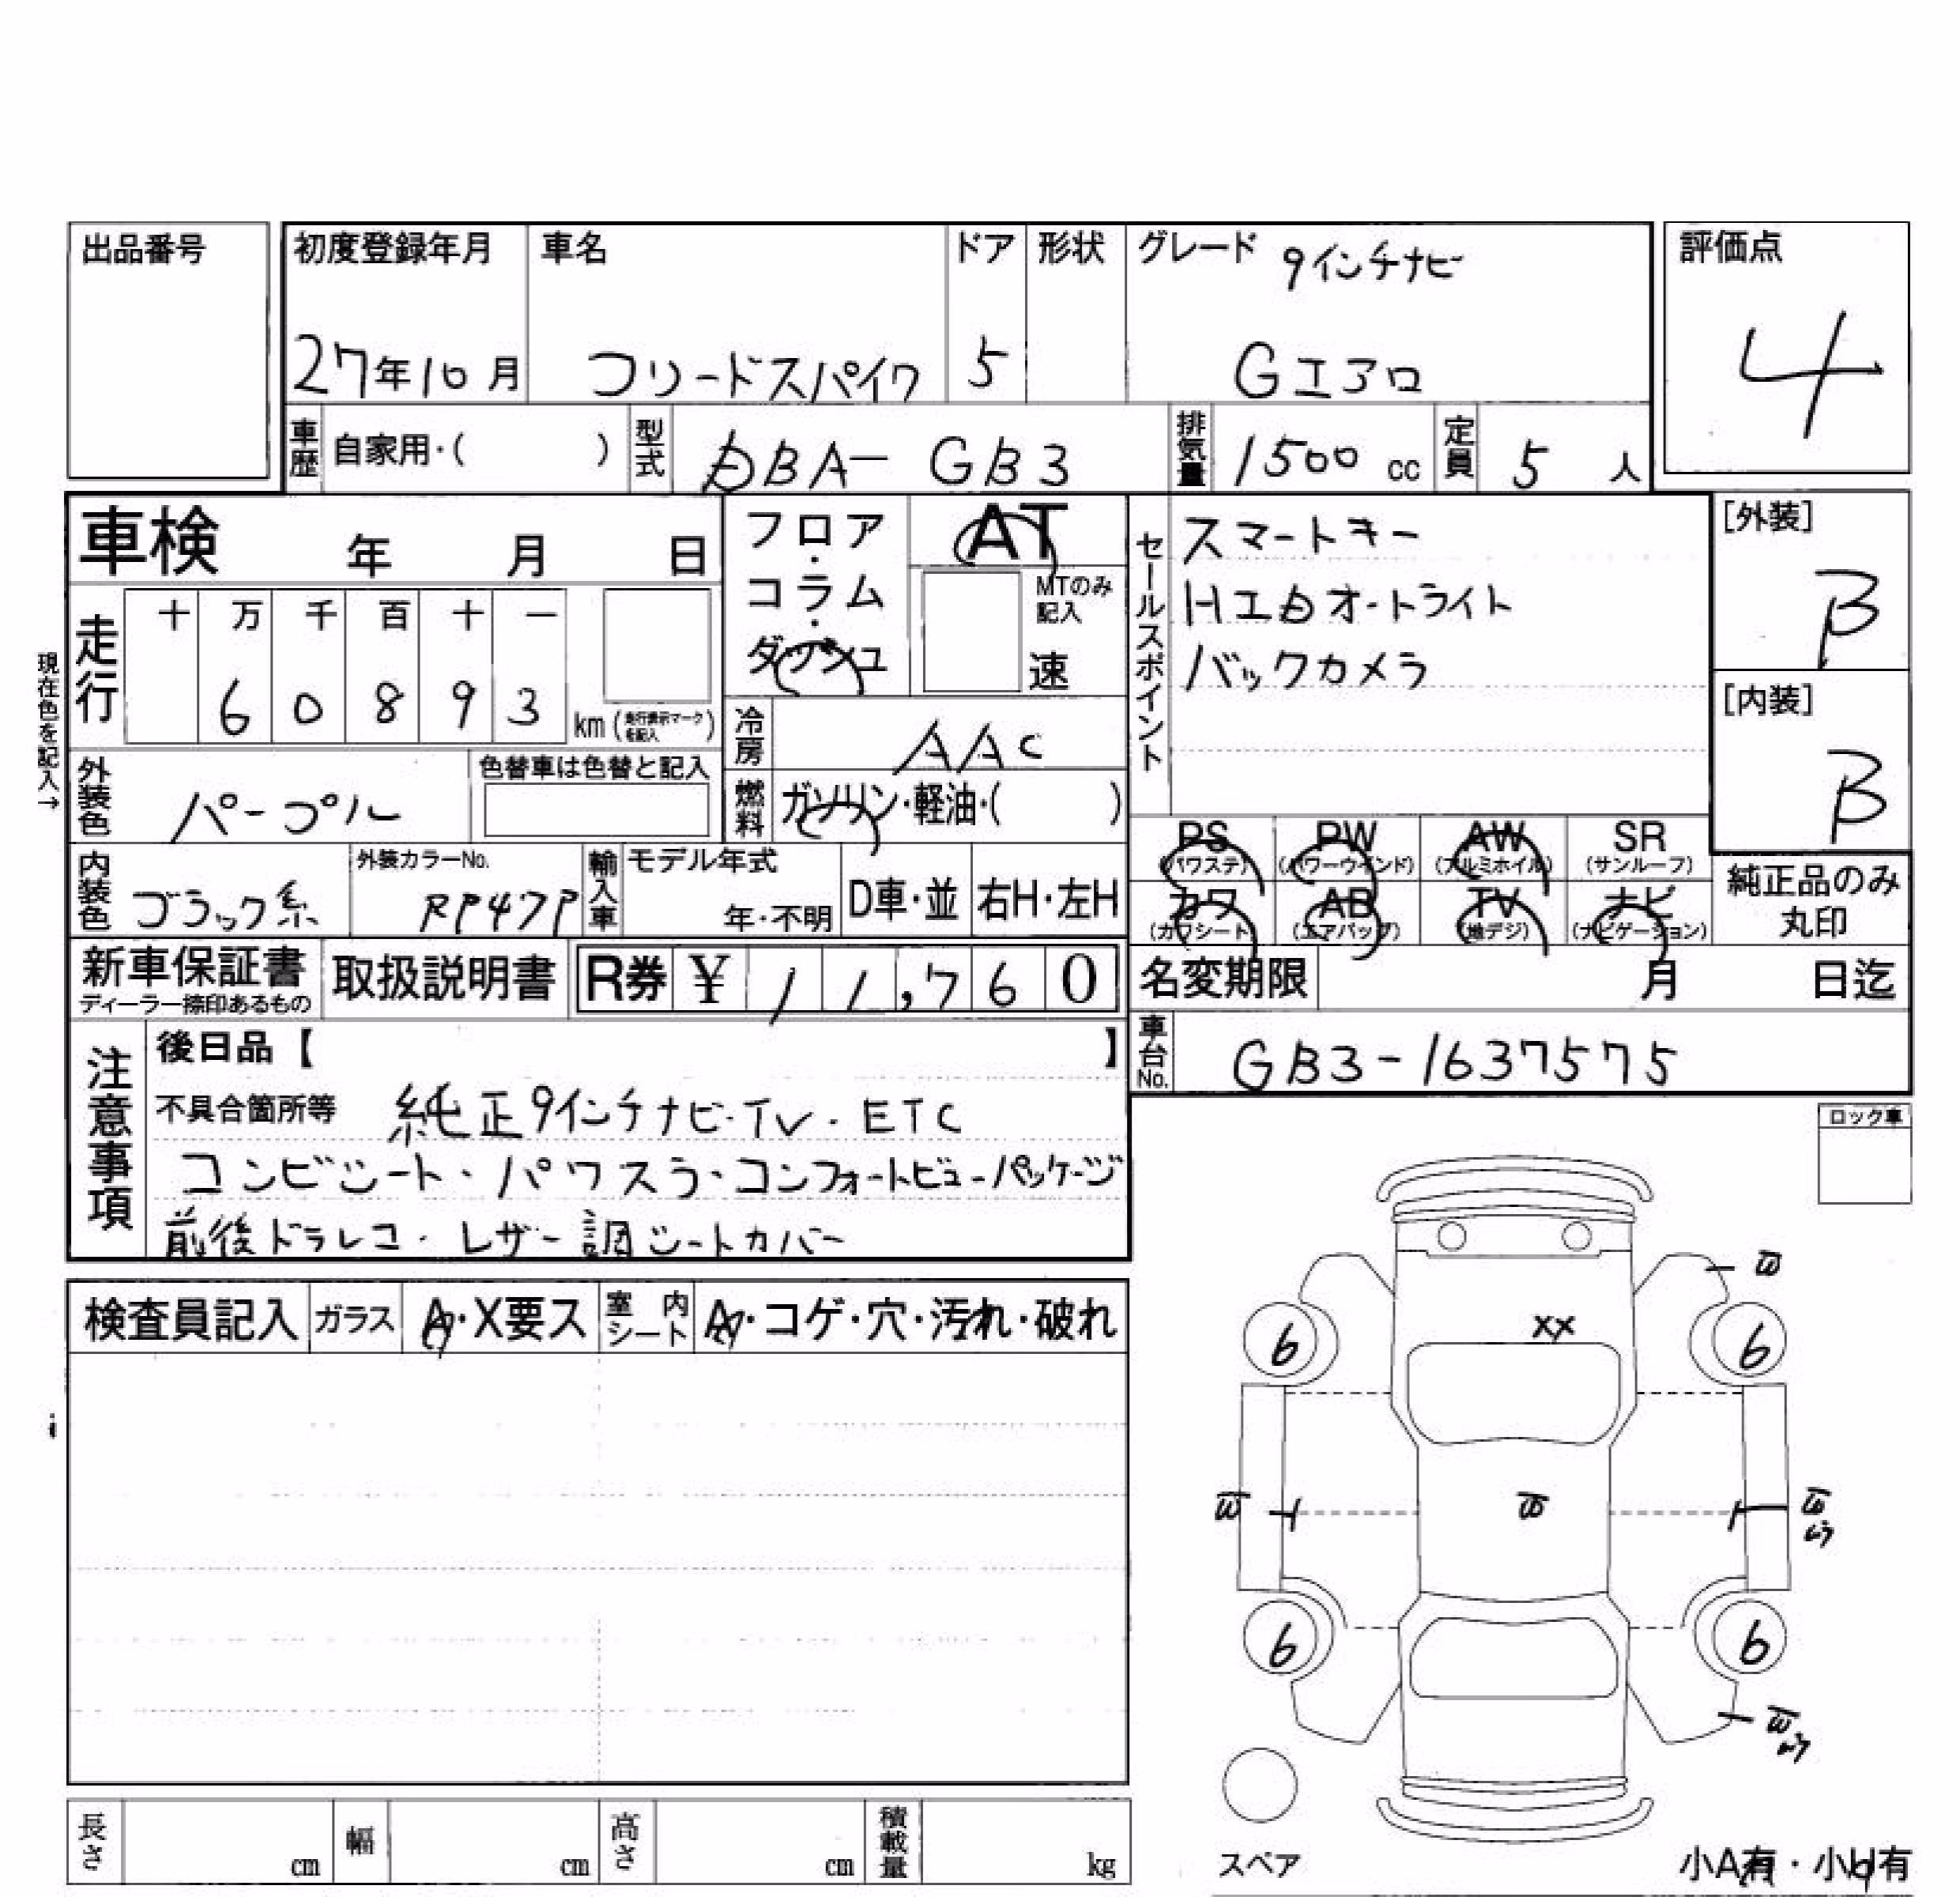 出品番号
初度登録年月
27年10月
車名
フリードスパイク
ドア
5
形状
グレード
9インチナビ
Gエアロ
評価点
4
車歴
自家用・( )
型式
DBA-GB3
排気量
1500 cc
定員
5 人
車検 年 月 日
走行
十 万 千 百 十 一
6 0 8 9 3
km (走行表示マークを記入)
現在色を記入→
外装色
パープル
色替車は色替と記入
内装色
ブラック系
外装カラーNo.
RP47P
輸入車
モデル年式
年・不明
D車・並
右H・左H
フロア・コラム・ダッシュ
AT
MTのみ記入
速
冷房
AAC
燃料
ガソリン・軽油・( )
セールスポイント
スマートキー
HIDオートライト
バックカメラ
[外装]
B
[内装]
B
PS (パワステ)
PW (パワーウインド)
AW (アルミホイル)
SR (サンルーフ)
カワ (カワシート)
AB (エアバッグ)
TV (地デジ)
ナビ (ナビゲーション)
純正品のみ丸印
新車保証書
ディーラー捺印あるもの
取扱説明書
R券 ¥ 11,760
名変期限 月 日迄
車台No.
GB3-1637575
注意事項
後日品【 】
不具合箇所等 純正9インチナビ・TV・ETC
コンビシート・パワスラ・コンフォートビューパッケージ
前後ドラレコ・レザー調シートカバー
ロック車
検査員記入
ガラス
A・X要ス
室内シート
A・コゲ・穴・汚れ・破れ
XX
6
6
6
6
スペア
小A有・小U有
長さ cm
幅 cm
高さ cm
積載量 kg